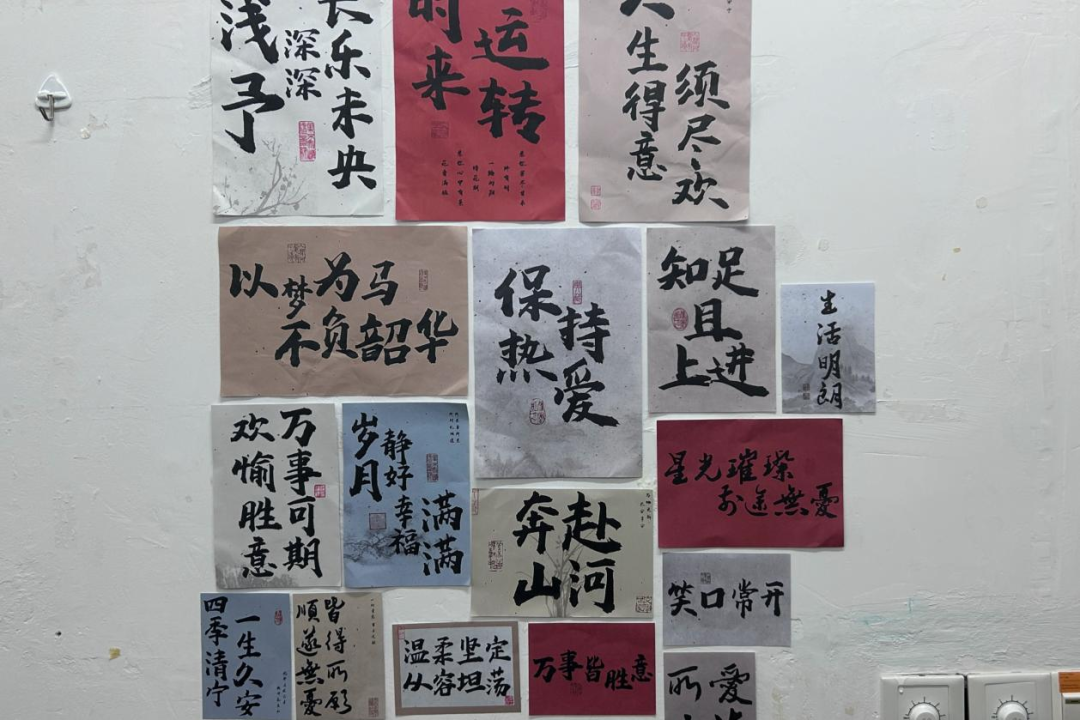 长乐未央
深深
浅予
时来
运转
人生得意
须尽欢
以梦为马
不负韶华
保持
热爱
知足
且
上进
生活明朗
万事可期
欢愉胜意
岁月
静好
幸福
满满
奔赴
山河
星光璀璨
前途無憂
笑口常开
一生久安
四季清宁
皆得所愿
順遂無憂
温柔坚定
从容坦荡
万事皆胜意
所爱